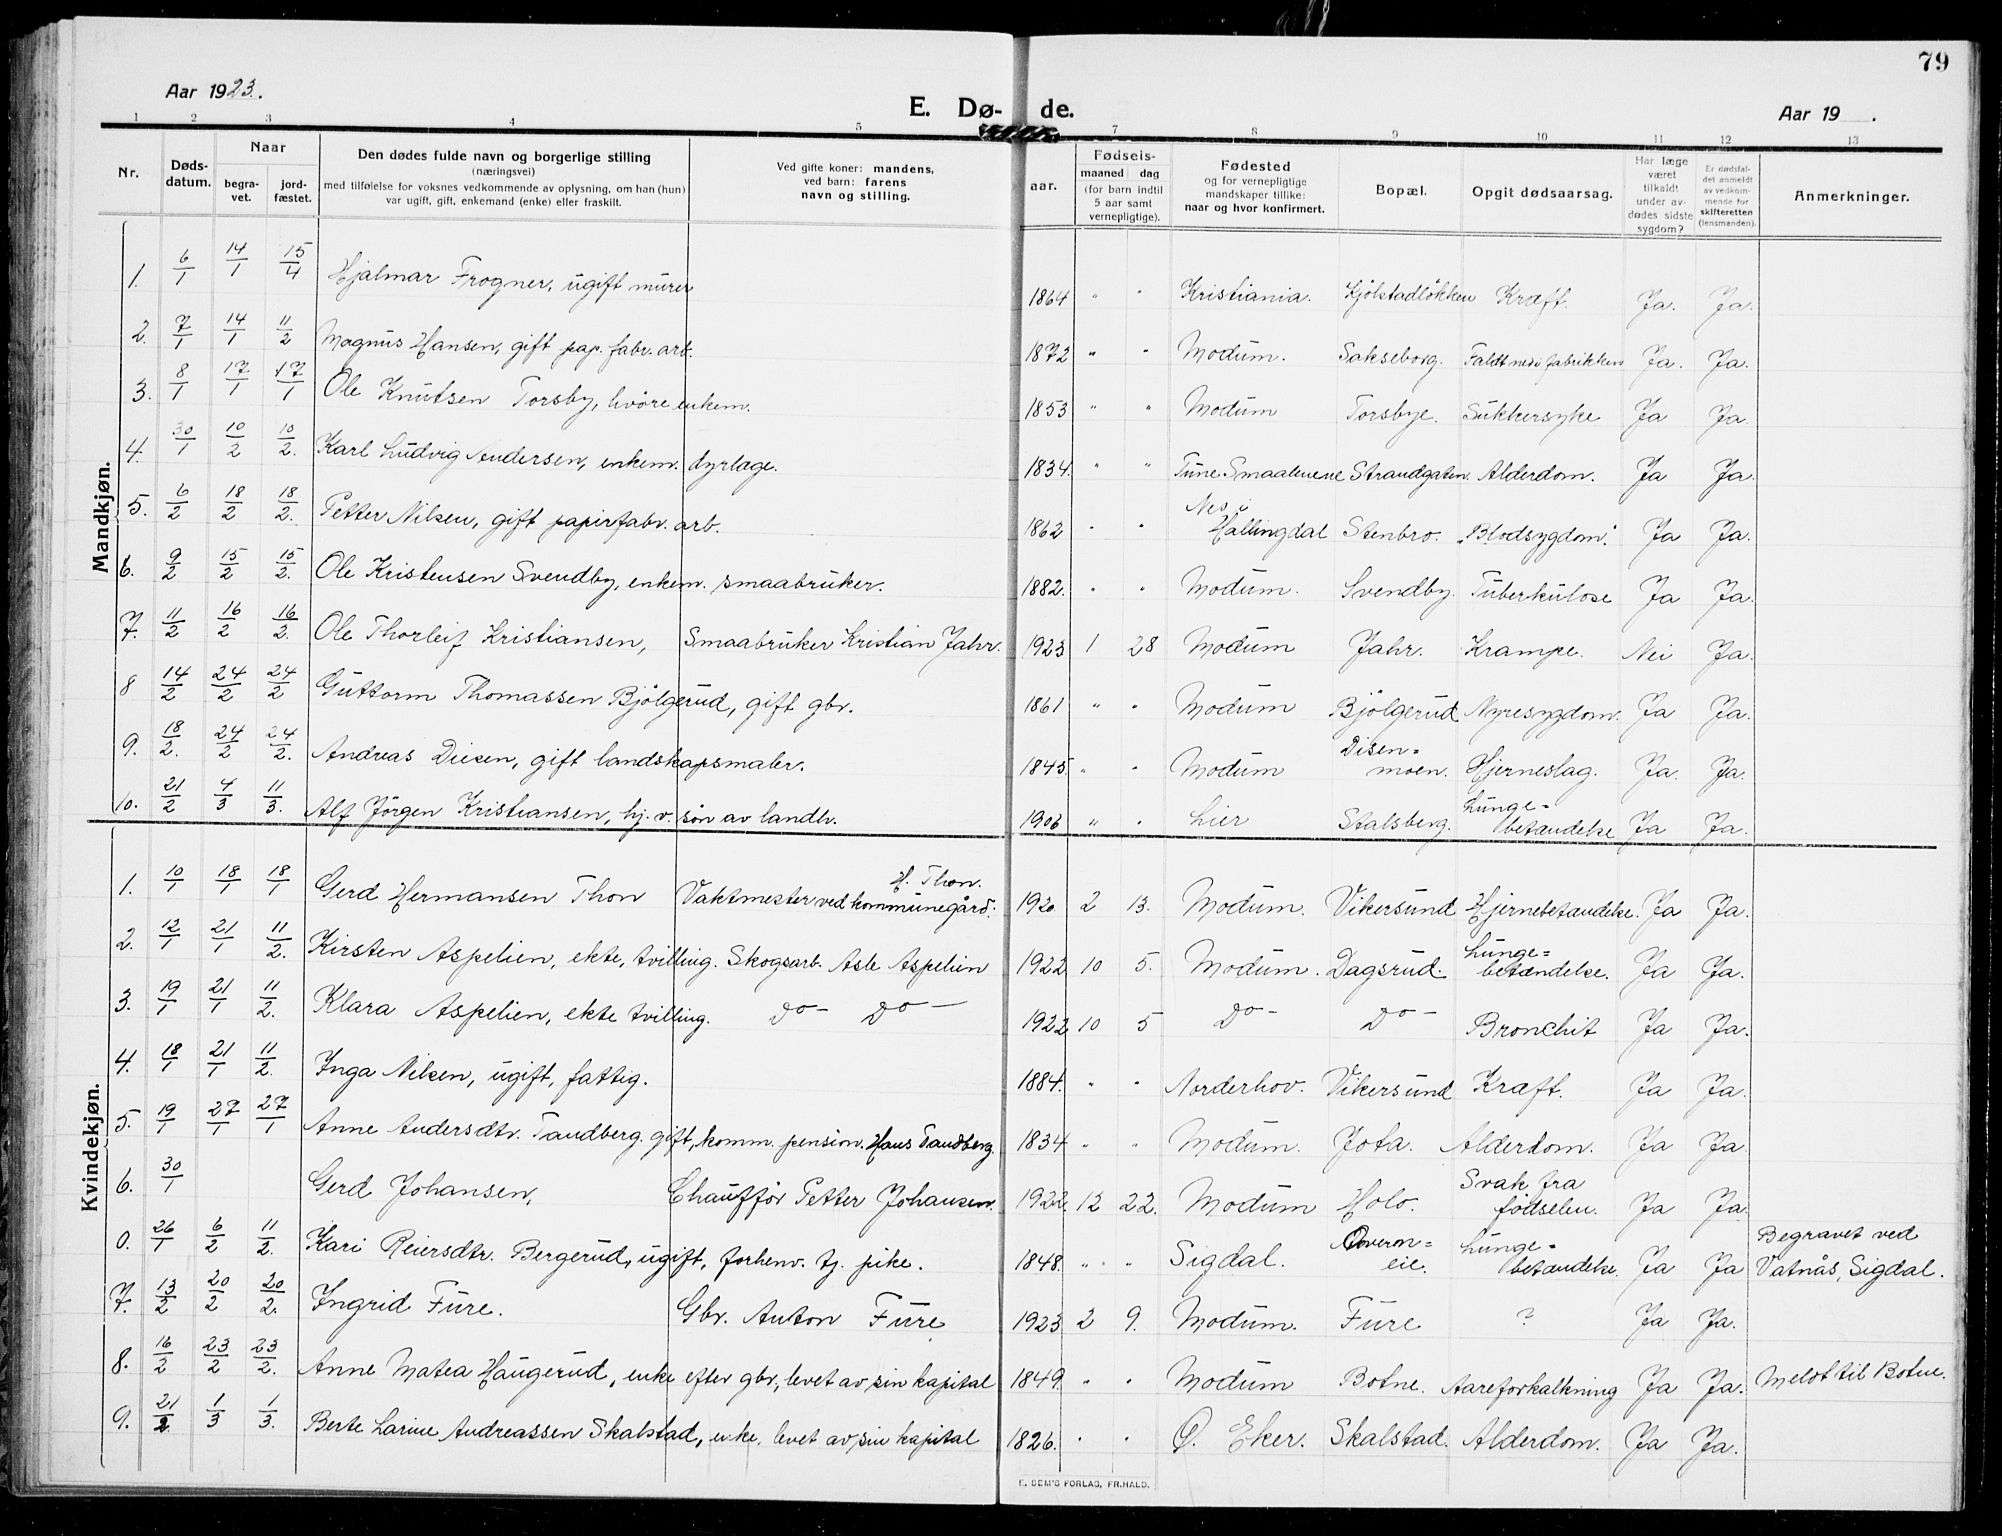 79
Aar 1923.
E. Dø- de.
Aar 19 .
1 2 3 4 5 7 8 9 10 11 12 13
Nr. Døds-datum. Naar begra-vet. jord-fæstet. Den dødes fulde navn og borgerlige stilling (næringsvei) med tilføielse for voksnes vedkommende av oplysning, om han (hun) var ugift, gift, enkemand (enke) eller fraskilt. Ved gifte koner: mandens, ved barn: farens navn og stilling. aar. Fødsels- maaned dag (for barn indtil 5 aar samt vernepligtige). Fødested og for vernepligtige mandskaper tillike: naar og hvor konfirmert. Bopæl. Opgit dødsaarsag. Har læge været tilkaldt under av-dødes sidste sygdom? Er dødsfal-det anmeldt av vedkom-mende for skifteretten (lensmanden). Anmerkninger.
Mandkjøn.
1. 6/1 14/1 15/4 Hjalmar Frogner, ugift murer 1864 " " Kristiania. Kjölstadlökken Kræft. Ja. Ja.
2. 7/1 14/1 11/2 Magnus Hansen, gift pap. fabr. arb. 1872 " " Modum. Sakseborg. Faldt ned i fabrikken Ja. Ja.
3. 8/1 17/1 17/1 Ole Knutsen Torsby, livøre enkem. 1853 " " Modum Torsbye. Sukkersyke Ja Ja.
4. 30/1 10/2 10/2. Karl Ludvig Andersen, enkem. dyrlæge. 1834. " " Tune Smaalenene Strandgaten. Alderdom. Ja Ja.
5. 6/2 18/2 18/2. Petter Nilsen, gift papirfabr. arb. 1862 " " Nes i Hallingdal Stenbro. "Blodsygdom". Ja Ja.
6. 9/2 15/2 15/2. Ole Kristensen Svendby, enkem. smaabruker. 1882. " " Modum. Svendby. Tuberkulose Ja Ja.
7. 11/2 16/2 16/2. Ole Thorleif Kristiansen, Smaabruker Kristian Jahr. 1923 1 28 Modum Jahr. Krampe. Nei Ja.
8 14/2 24/2 24/2 Guttorm Thomassen Bjölgerud, gift gbr. 1861 " " Modum Bjölgerud Nyresygdom. Ja Ja.
9. 18/2. 24/2 24/2. Andreas Diesen, gift landskapsmaler. 1845. " " Modum Disen=moen. Hjerneslag. Ja. Ja.
10. 21/2 4/3 11/3. Alf Jörgen Kristiansen, hj. v. sön av landh. 1906 " " Lier Stalsberg. Lunge=betændelse Ja Ja.
Kvindekjøn.
1. 10/1 18/1 18/1 Gerd Hermansen Thon Vaktmester ved kommunegård. H. Thon. 1920 2 13. Modum. Vikersund Hjernebetændelse. Ja Ja.
2. 12/1 21/1 11/2. Kirsten Aspelien, ekte, tvilling. Skogsarb. Asle Aspelien 1922 10 5. Modum. Dagsrud. Lunge=betændelse. Ja Ja.
3. 19/1 21/1 11/2. Klara Aspelien, ekte tvilling. Do - Do - 1922 10 5 Do - Do - Bronchit Ja Ja.
4. 18/1 21/1 11/2. Inga Nilsen, ugift, fattig. 1884. " " Norderhov. Vikersund Kræft. Ja Ja.
5. 19/1 27/1 27/1 Anne Andersdtr. Tandberg. gift, komm. pension. Hans Tandberg. 1834 " " Modum. Jota. Alderdom. Ja Ja
6. 30/1 Gerd Johansen, Chauffør Petter Johansen. 1922. 12 22. Modum Holo. Svak fra födselen. Ja Ja
0. 26/1 6/2 11/2. Kari Reiersdtr. Bergerud, ugift, forhenv. tj. pike. 1848. " " Sigdal. Overn=eie. Lunge=betændelse. Ja Ja Begravet ved Vatnås, Sigdal.
7. 13/2 20/2 20/2. Ingrid Fure. Gbr. Anton Fure 1923 2 9. Modum. Fure ? Ja Ja.
8. 16/2 23/2 23/2. Anne Matea Haugerud, enke efter gbr., levet av sin kapital 1849. " " Modum Botne. Aareforkalkning Ja Ja. Meldt til Botne.
9. 21/2. 1/3 1/3. Berte Larine Andreassen Skalstad, enke. levet av sin kapital 1826. " " Ø. Eker. Skalstad. Alderdom. Ja Ja.
E. SEM'S FORLAG, FR.HALD.